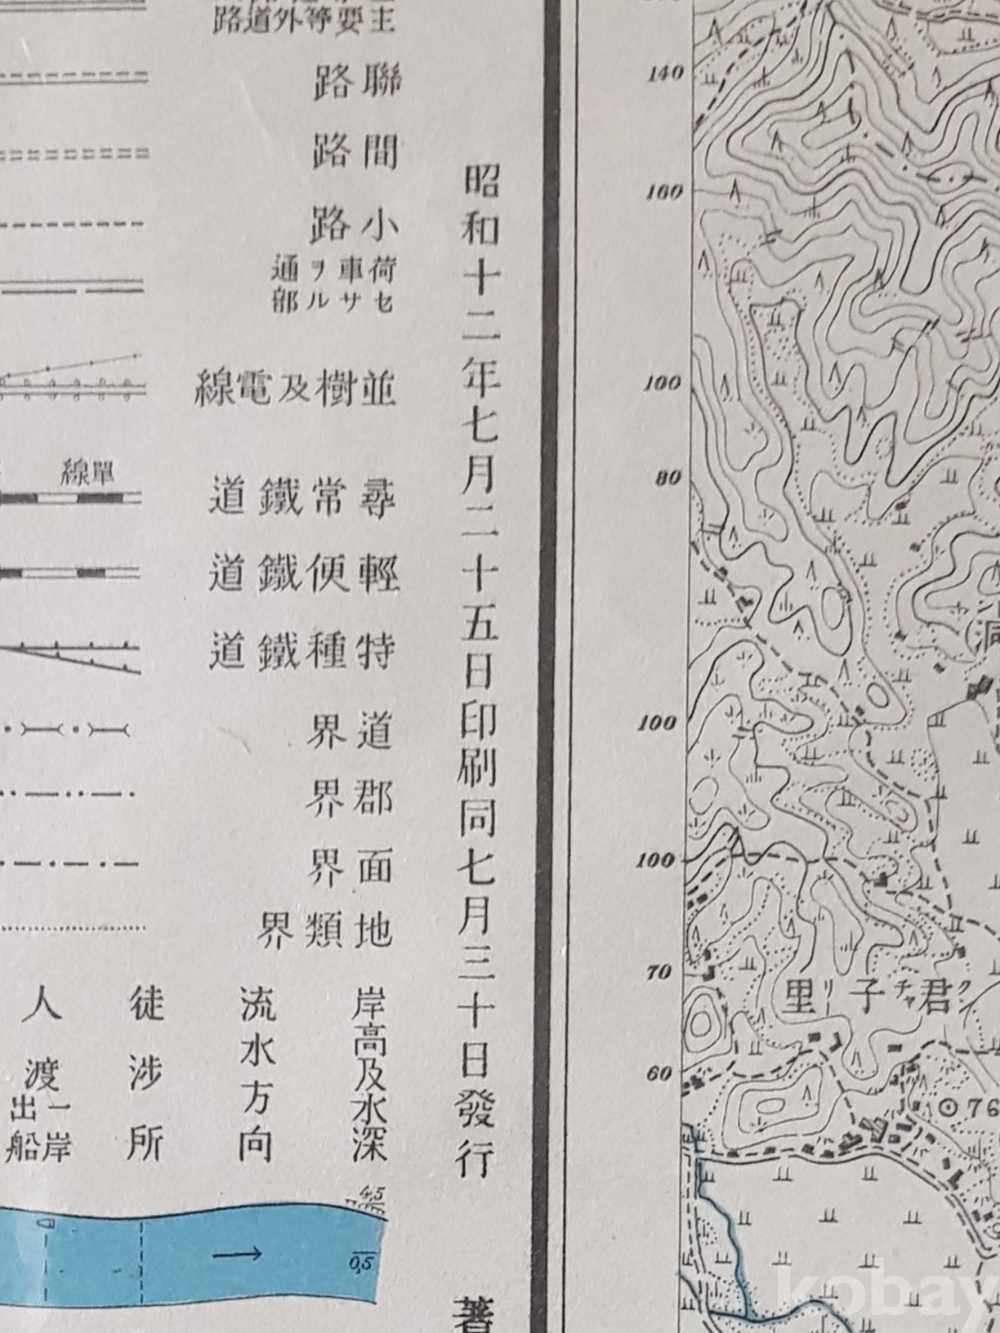 路道外等要主
路聯
路間
路小
通ヲ車荷
部ルサセ
線電及樹並
線單
道鐵常尋
道鐵便輕
道鐵種特
界道
界郡
界面
界類地
岸高及水深
流水方向
徒涉所
人渡
一岸
出船
4,5
0,5
昭和十二年七月二十五日印刷同七月三十日發行
著
140
160
100
80
100
100
70
60
洞
里リ子チャ君ク
76
kobay